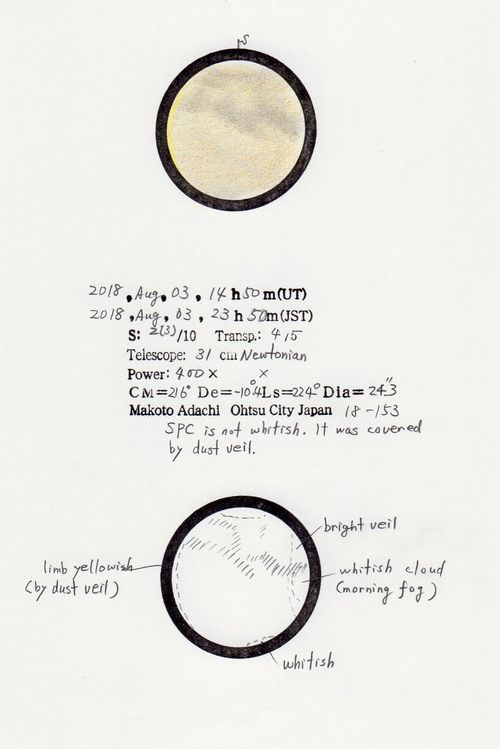 S
2018, Aug, 03, 14 h 50 m (UT)
2018, Aug, 03, 23 h 50 m (JST)
S: 2(3)/10 Transp.: 4/5
Telescope: 31 cm Newtonian
Power: 400 × ×
CM=216° De=-10.4° Ls=224° Dia= 24.3"
Makoto Adachi Ohtsu City Japan 18-153
SPC is not whitish. It was covered
by dust veil.
bright veil
limb yellowish
(by dust veil)
whitish cloud
(morning fog)
whitish